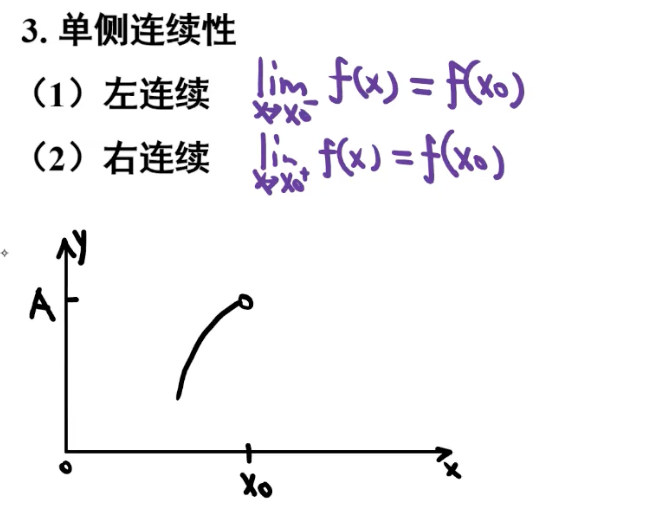 3. 单侧连续性
（1）左连续 lim x→x₀⁻ f(x) = f(x₀)
（2）右连续 lim x→x₀⁺ f(x) = f(x₀)
y
A
o
x₀
x